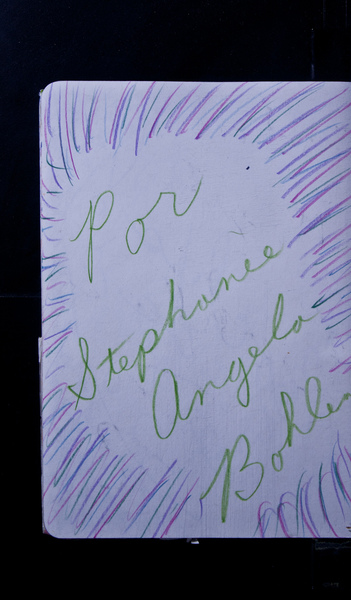 Por
Stephanee
Angela
Bohlen